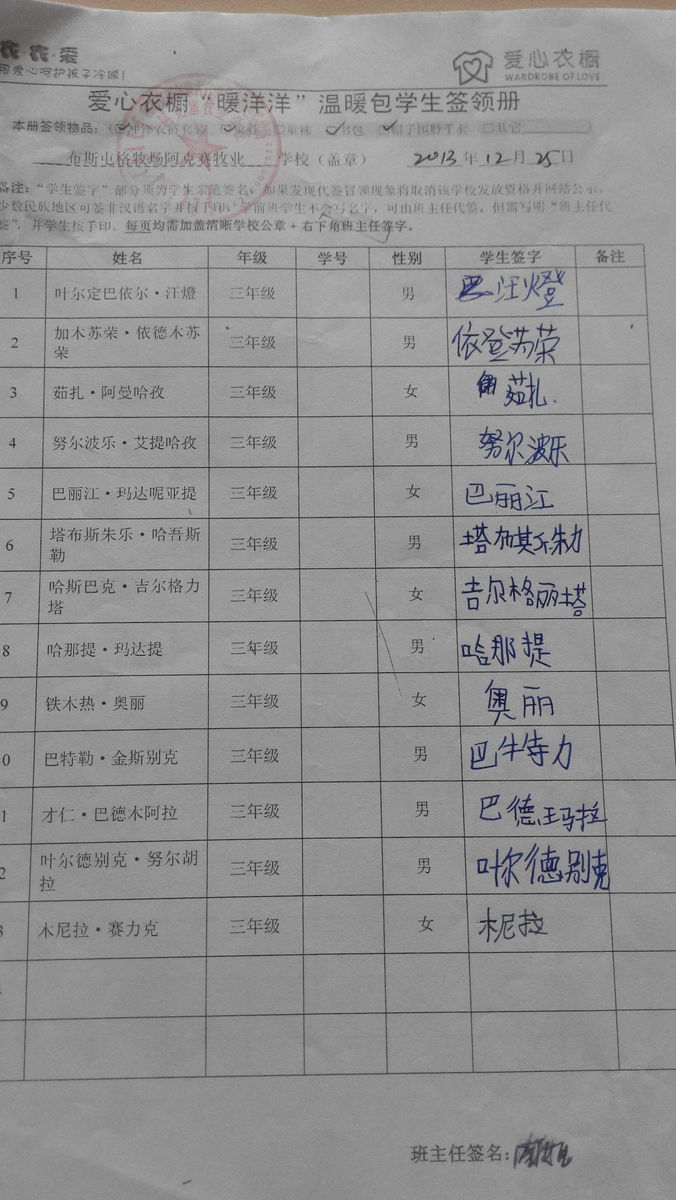 衣·衣·爱
用爱心呵护孩子冷暖!
爱心衣橱
WARDROBE OF LOVE
爱心衣橱“暖洋洋”温暖包学生签领册
本册签领物品: 书包 帽子围脖手套 其它
布斯屯格牧场阿克赛牧业 学校（盖章） 2013年12月25日
备注：“学生签字”部分须为学生亲笔签名，如果发现代签冒领现象将取消该学校发放资格并网站公示。
少数民族地区可签非汉语名字并按手印。学前班学生不会写名字，可由班主任代签，但需写明“班主任代
签”，并学生按手印。每页均需加盖清晰学校公章+右下角班主任签字。
序号 姓名 年级 学号 性别 学生签字 备注
1 叶尔定巴依尔·汪燈 三年级 男 巴汪燈
2 加木苏荣·依德木苏荣 三年级 男 依登苏荣
3 茹扎·阿曼哈孜 三年级 女 茹扎.
4 努尔波乐·艾提哈孜 三年级 男 努尔波乐
5 巴丽江·玛达呢亚提 三年级 女 巴丽江
6 塔布斯朱乐·哈吾斯勒 三年级 男
7 哈斯巴克·吉尔格力塔 三年级 女 吉尔格丽塔
8 哈那提·玛达提 三年级 男 哈那提
9 铁木热·奥丽 三年级 女 奥丽
0 巴特勒·金斯别克 三年级 男 巴特力
1 才仁·巴德木阿拉 三年级 男 巴德玛拉
2 叶尔德别克·努尔胡拉 三年级 男 叶尔德别克
3 木尼拉·赛力克 三年级 女 木尼拉
班主任签名: